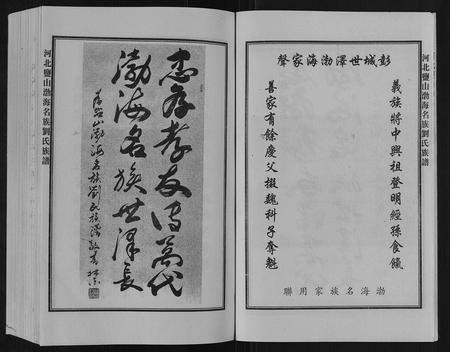 彭城世澤渤海家聲
義族將中興祖登明經孫食餼
善家有餘慶父掇魏科子奪魁
渤海名族家用聯
河北鹽山渤海名族劉氏族譜
忠孝孝友傳萬代
渤海名族世澤長
山渤海名族劉氏族譜
河北鹽山渤海名族劉氏族譜